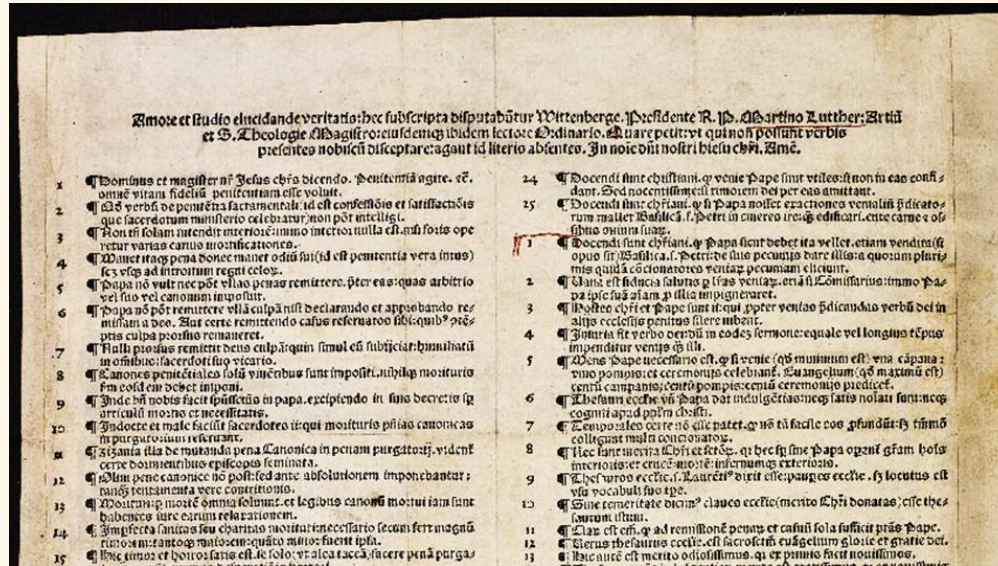 Amore et studio elucidande veritatis: hec subscripta disputabūtur Wittenberge. Presidente R. P. Martino Lutther: Artiū
et S. Theologie Magistro: eiusdemq; ibidem lectore Ordinario. Quare petit: vt qui non possunt verbis
presentes nobiscū disceptare: agant id literis absentes. In noīe dñi nostri hiesu chrī. Amē.
1 ¶ Dominus et magister nr̄ Jesus chrs dicendo. Penitentiā agite. ⁊c̄.
omnē vitam fideliū penitentiam esse voluit.
2 ¶ Qd̄ verbū de penitētia sacramentali: id est confessiōis et satisfactiōis
que sacerdotum ministerio celebratur) non pōt intelligi.
3 ¶ Non tn̄ solam intendit interiorē: immo interior nulla est. nisi foris ope
retur varias carnis mortificationes.
4 ¶ Manet itaq; pena donec manet odiū sui (id est penitentia vera intus)
sc̨ vsq; ad introitum regni celoꝝ.
5 ¶ Papa nō vult nec pōt vllas penas remittere. p̄ter eas: quas arbitrio
vel suo vel canonum imposuit.
6 ¶ Papa nō pōt remittere vllā culpā nisi declarando et approbando re-
missam a deo. Aut certe remittendo casus reseruatos sibi: quibꝰ ptē-
ptis culpa prorsus remaneret.
7 ¶ Nulli prorsus remittit deus culpā: quin simul eū subijciat: humiliatū
in omnibus: sacerdoti suo vicario.
8 ¶ Canones penitētiales solū viuentibus sunt impositi. nihilq; morituris
fm eosdē debet imponi.
9 ¶ Inde bn̄ nobis facit spūssctūs in papa. excipiendo in suis decretis sp̄
articulū mortis et necessitatis.
10 ¶ Indocte et male faciūt sacerdotes ii: qui morituris pn̄ias canonicas
in purgatorium reseruant.
11 ¶ Zizania illa de mutanda pena Canonica in penam purgatorij. vident᷑
certe dormientibus episcopis seminata.
12 ¶ Olim pene canonice nō post: sed ante absolutionem imponebantur:
tanq̄ tentamenta vere contritionis.
13 ¶ Morituri: p mortē omnia soluunt. et legibus canonū mortui iam sunt
habentes iure earum relaxationem.
14 ¶ Imperfecta sanitas seu charitas morituri: necessario secum fert magnū
timorē: tantoq; maiorem: quāto minor fuerit ipsa.
15 ¶ Hic timor et horror: satis est. se solo: vt alia tacea) facere penā purga-
24 ¶ Docendi sunt christiani. q venie Pape sunt vtiles: si non in eas confi-
dant. Sed nocentissime: si timorem dei per eas amittant.
25 ¶ Docendi sunt chr̄iani. q si Papa nosset exactiones venialiū p̄dicato-
rum mallet Basilicā. s. Petri in cineres ire: q̄ edificari. ex cute carne ⁊ os-
sibus ouium suaꝝ.
1 ¶ Docendi sunt chr̄iani. q Papa sicut debet ita vellet. etiam vendita (si
opus sit) Basilica. s. Petri: de suis pecuniis dare illis: a quorum pluri-
mis quidā cōcionatores veniaꝝ pecuniam eliciunt.
2 ¶ Vana est fiducia salutis p l̄ras veniaꝝ. etiā si Commissarius: immo Pa-
pa ip̄e suā aīam p illis impigneraret.
3 ¶ Hostes chr̄i et Pape sunt ii: qui ꝓpter venias p̄dicandas verbū dei in
alijs ecclesijs penitus silere iubent.
4 ¶ Iniuria fit verbo dei: dū in eodez sermone: equale vel longius tēpus
impenditur venijs q̄ illi.
5 ¶ Mens Pape necessario est. q si venie (qd̄ minimum est) vna cāpana:
vnis pompis: et ceremonijs celebrant᷑. Euangelium (qd̄ maximū est)
centū campanis: centū pompis: centū ceremonijs predicet᷑.
6 ¶ Thesauri ecclie vn̄ Papa dat indulgētias: neq; satis noīati sunt: neq;
cogniti apud ppl̄m christi.
7 ¶ Temporales certe nō esse patet. q nō tā facile eos ꝓfundūt: sꝫ tm̄mō
colligunt multi concionatoꝝ.
8 ¶ Nec sunt merita Chr̄i et sctōꝝ. q hec sp̄ sine Papa operant᷑ gr̄am hoīs
interioris: et crucē: mortē: infernumq; exterioris.
9 ¶ Thesauros ecclie. s. Laurētiꝰ dixit esse: pauꝑes ecclie. sꝫ locutus est
vsu vocabuli suo tp̄e.
10 ¶ Sine temeritate dicimꝰ claues ecclie (merito Chr̄i donatas) esse the-
saurum istum.
11 ¶ Claꝝ est em̄. q ad remissionē penaꝝ et casuū sola sufficit ptās Pape.
12 ¶ Verus thesaurus ecclie. est sacrosctm̄ euāgelium glorie et gratie dei.
13 ¶ Hic autē est merito odiosissimus. q ex primis facit nouissimos.